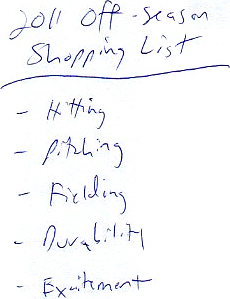 2011 Off-season
Shopping List
- Hitting
- Pitching
- Fielding
- Durability
- Excitement